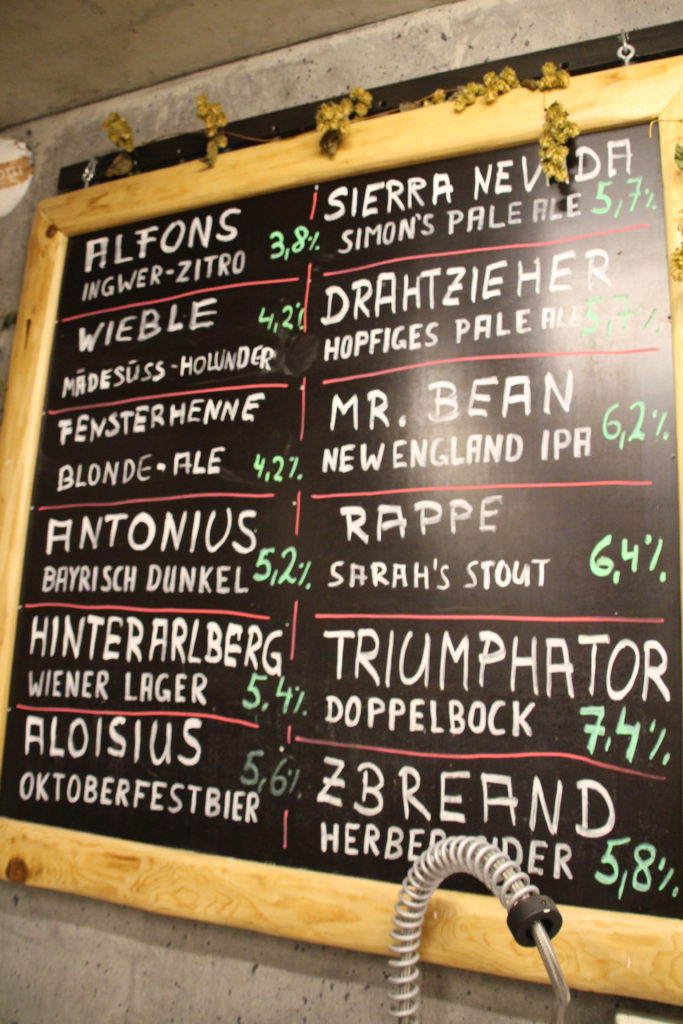 ALFONS 3,8%
INGWER-ZITRO
WIEBLE 4,2%
MÄDESÜSS-HOLUNDER
FENSTERHENNE
BLONDE-ALE 4,2%
ANTONIUS
BAYRISCH DUNKEL 5,2%
HINTERARLBERG
WIENER LAGER 5.4%
ALOISIUS
OKTOBERFESTBIER 5,6%
SIERRA NEVADA
SIMON'S PALE ALE 5,7%
DRAHTZIEHER
HOPFIGES PALE ALE 5,7%
MR. BEAN
NEW ENGLAND IPA 6,2%
RAPPE
SARAH'S STOUT 6,4%
TRIUMPHATOR
DOPPELBOCK 7.4%
ZBREAND
5,8%